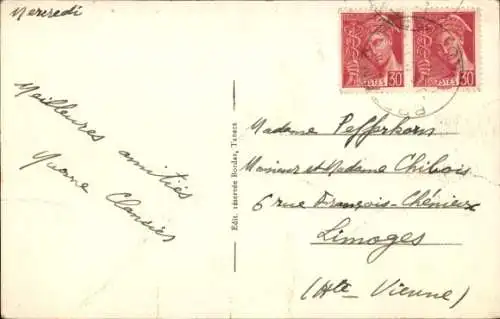 Mercredi
Meilleures amitiés
Yvonne
Edit. réservée Bordas, Tanger
POSTES 30
POSTES 30
Madame Pefferkorn
Monsieur et Madame Chibois
6 rue François-Chénieux
Limoges
(Hte Vienne)